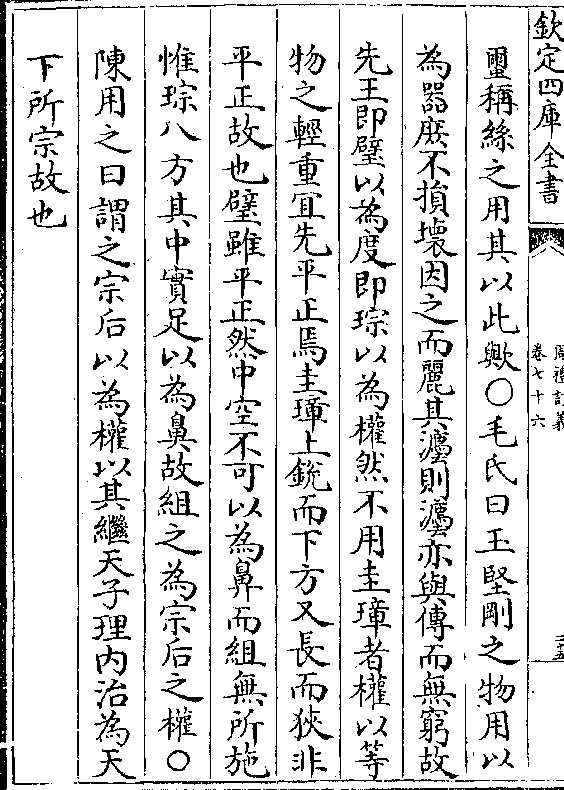 欽定四庫全書
周禮訂義
卷七十六
二十五
璽稱絲之用其以此歟○毛氏曰玉堅剛之物用以
為器庶不損壞因之而麗其灋則灋亦與傳而無窮故
先王即璧以為度即琮以為權然不用圭璋者權以等
物之輕重宜先平正焉圭璋上銳而下方又長而狹非
平正故也璧雖平正然中空不可以為鼻而組無所施
惟琮八方其中實足以為鼻故組之為宗后之權○
陳用之曰謂之宗后以為權以其繼天子理内治為天
下所宗故也